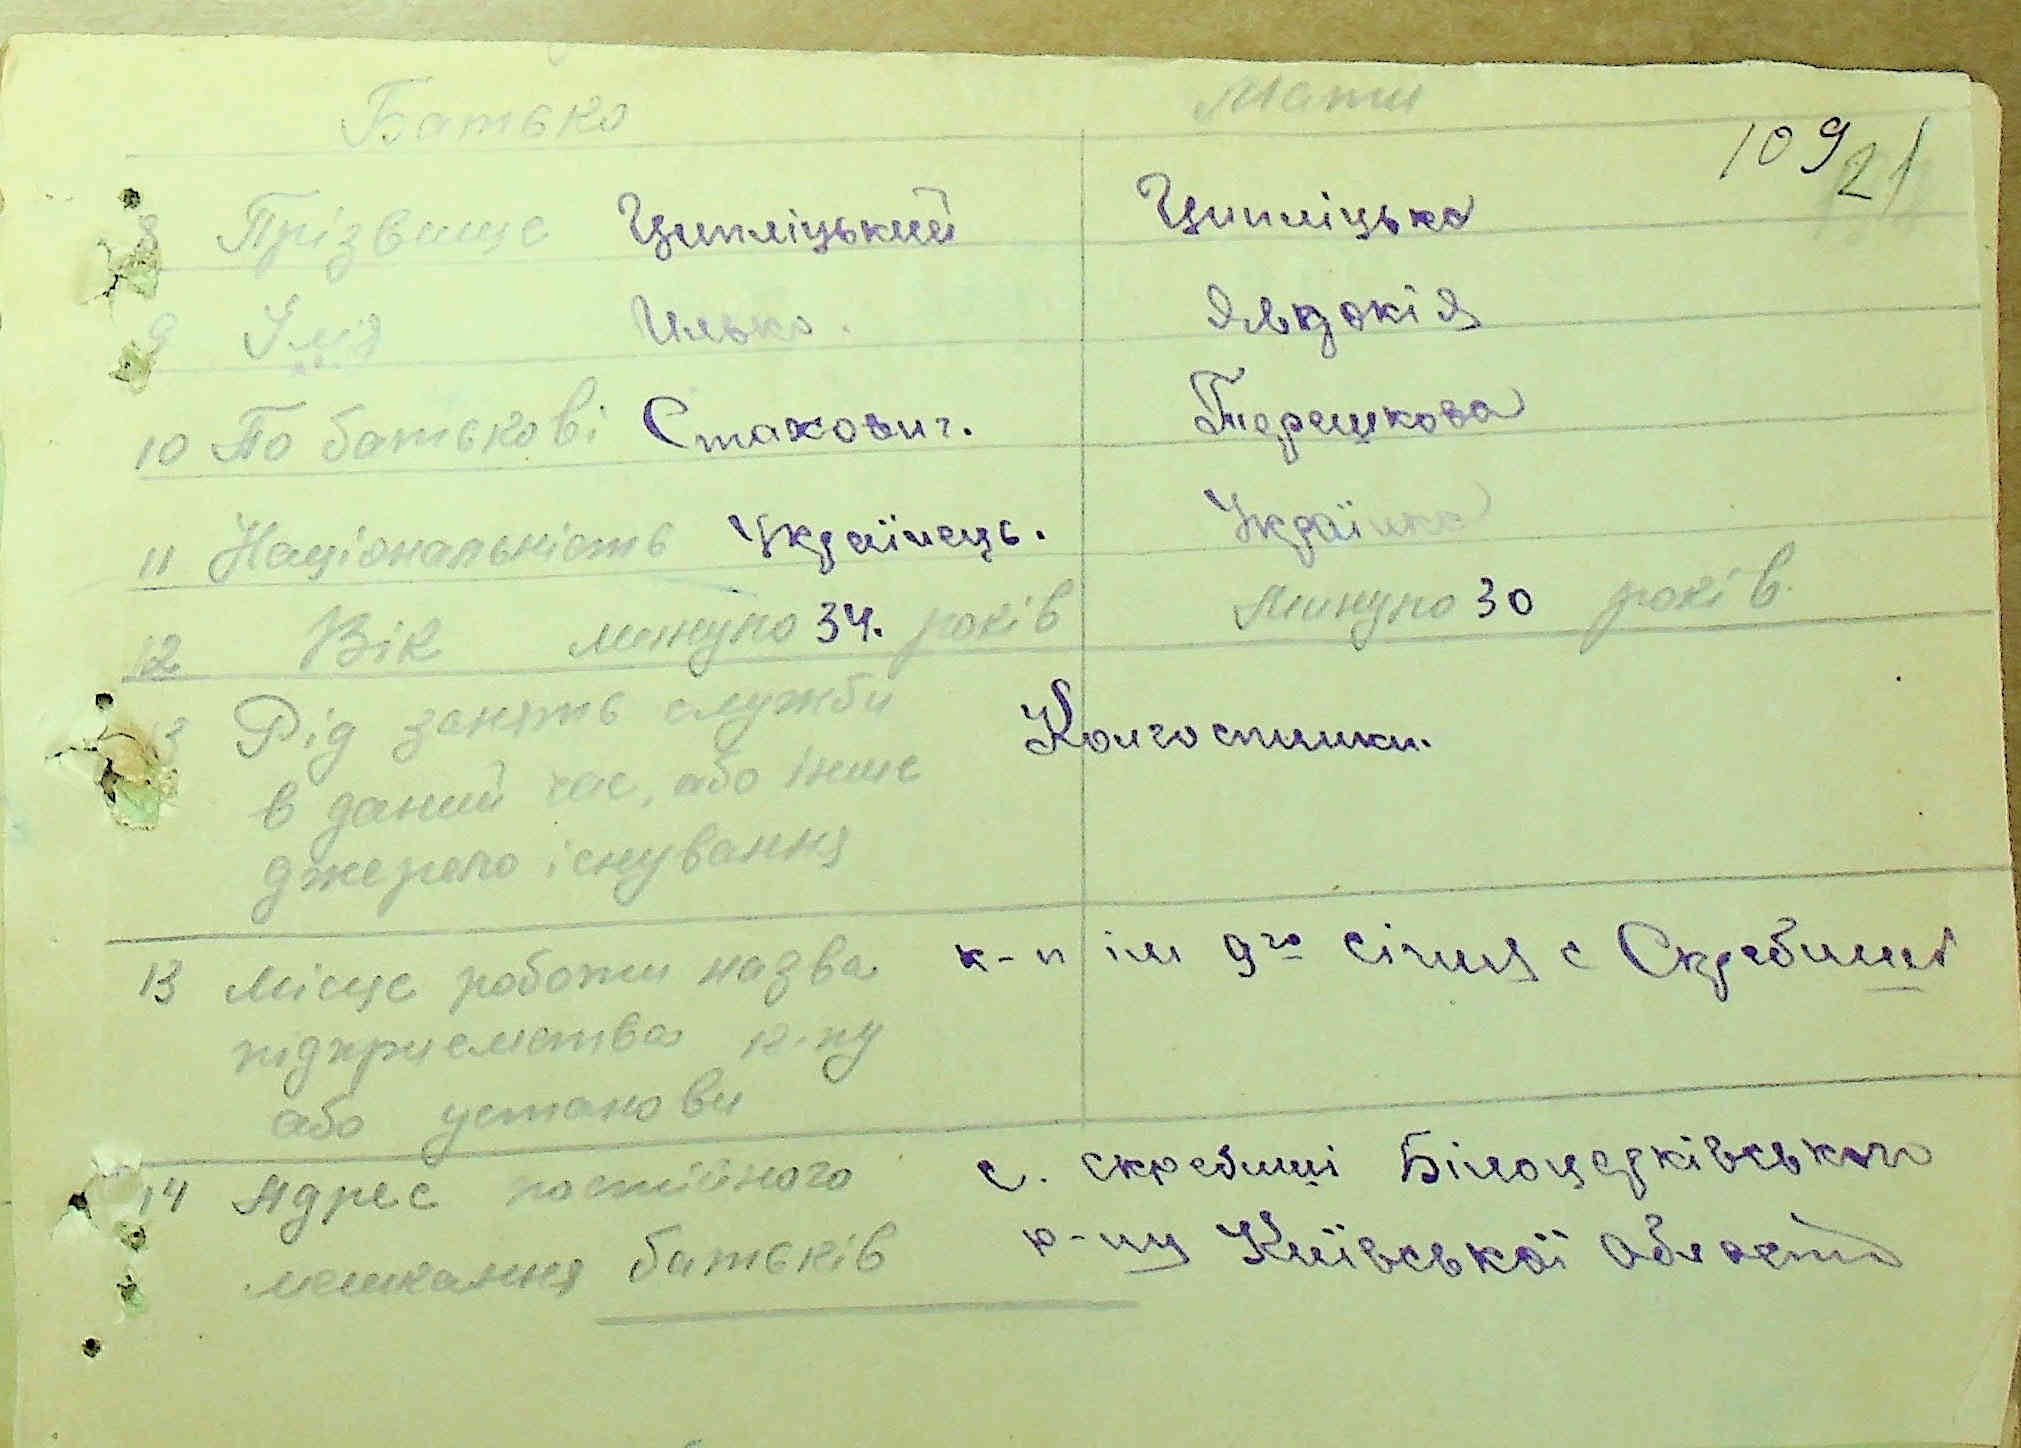 Батько Мати
109 21
8 Прізвище Ципліцький Ципліцька
9 Імія Илько. Явдокія
10 По батькові Стахович. Терешкова
11 Національність Українець. Українка
12 Вік минуло 34. років минуло 30 років.
13 Рід занять служби Колгоспники.
в даний час, або інше
джерело існування
13 Місце роботи назва к-п ім 9го січня с Скребиші
підприємства к-пу
або установи
14 Адрес постійного с. Скребиші Білоцерківського
мешкання батьків р-ну Київської області